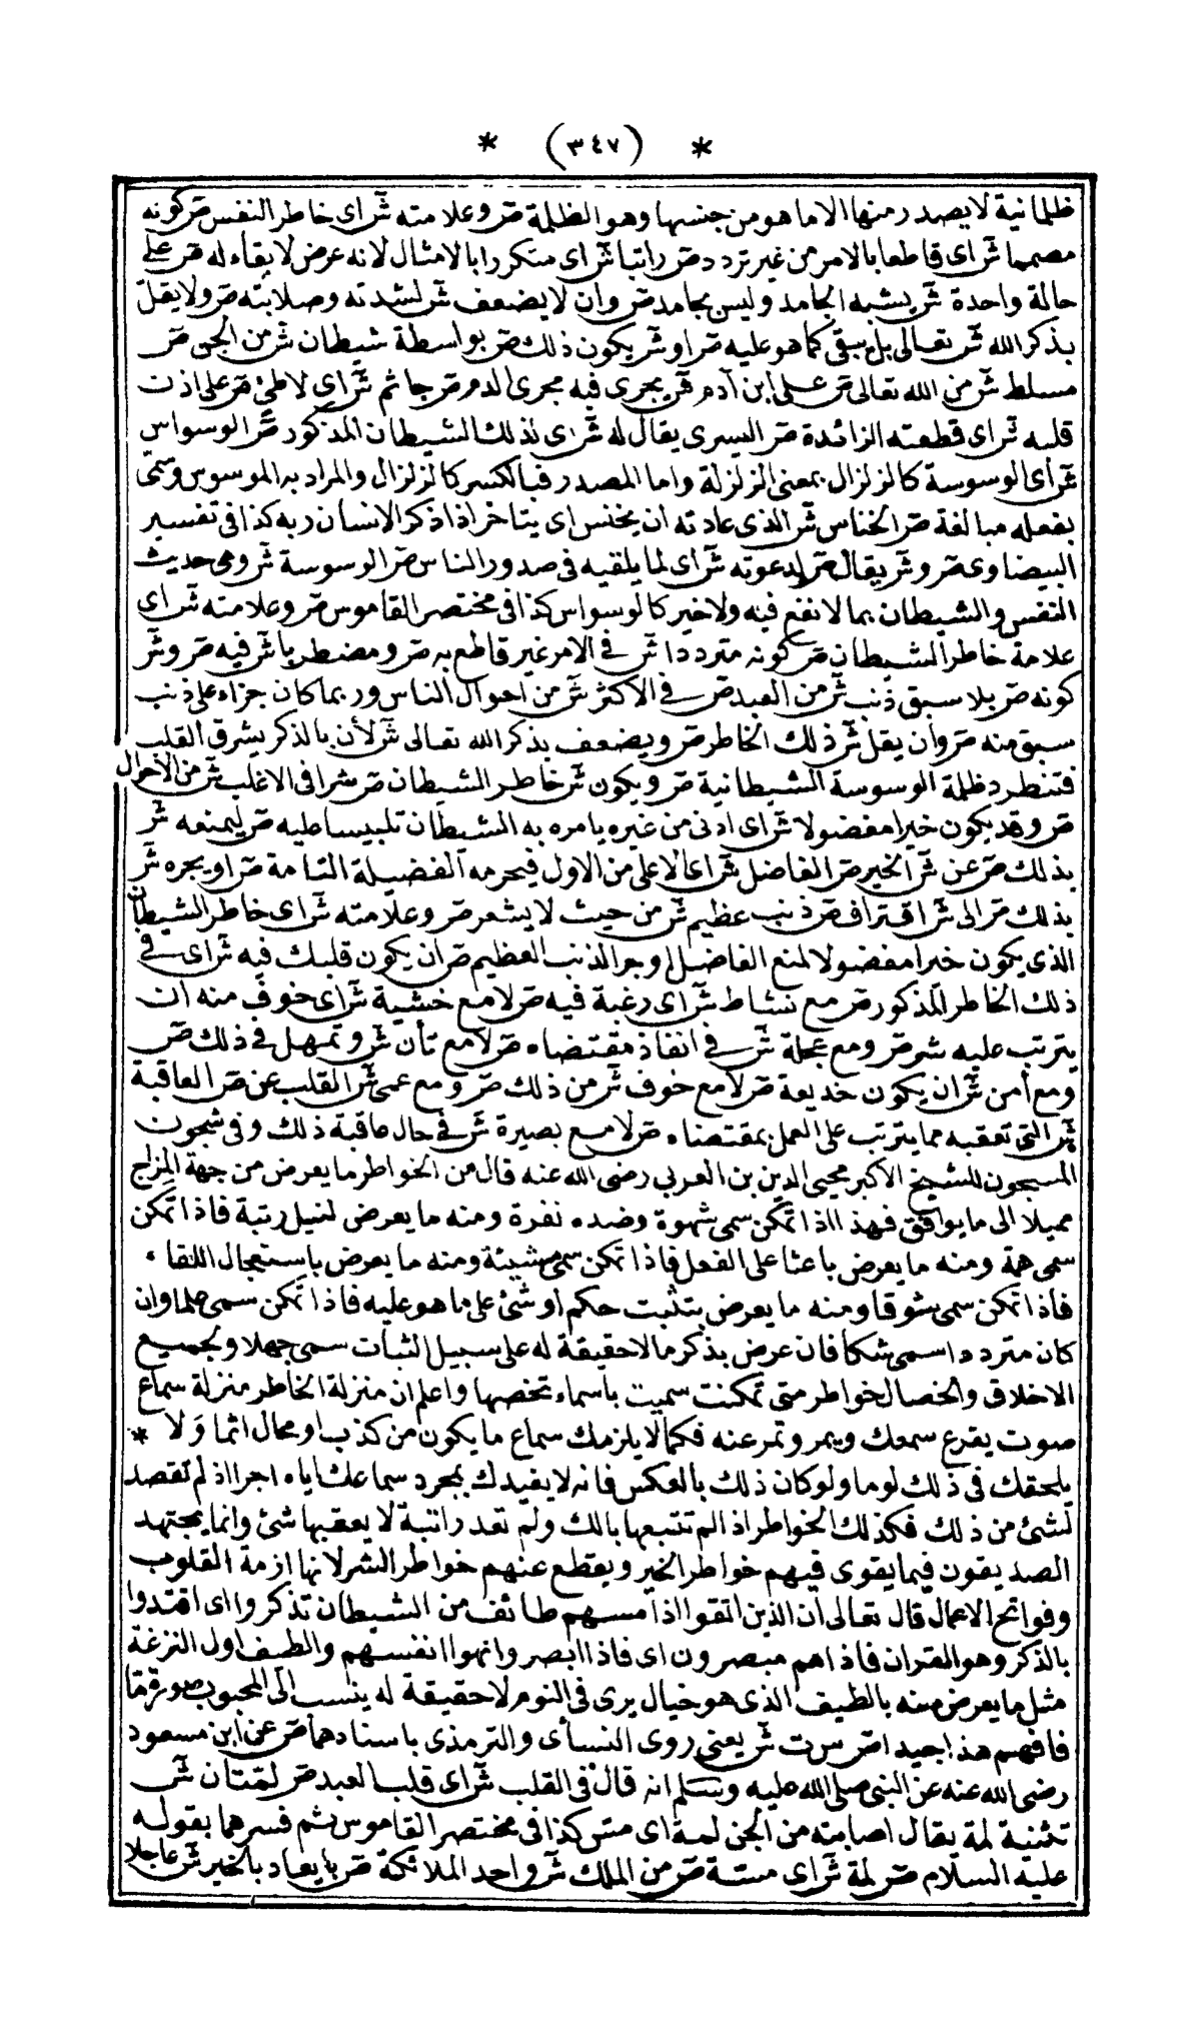 * (٣٤٧) *
ظلمانية لا يصدر منها الا ما هو من جنسها وهو الظلمة ص وعلامته ش اى خاطر النفس ص كونه
مصمما ش اى قاطعا بالامر من غير تردد ص راتبا ش اى متكررا بالامثال لانه عرض لا بقاء له ص على
حالة واحدة ش يشبه الجامد وليس بجامد ص وان لا يضعف ش لشدته وصلابته ص ولا يقل
بذكر الله ش تعالى بل يبقى كما هو عليه ص او ش يكون ذلك ص بواسطة شيطان ش من الجن ص
مسلط ش من الله تعالى ص على ابن آدم ش يجرى فيه مجرى الدم ص جاثم ش اى لاطئ ص على اذن
قلبه ش اى قطعته الزائدة ص اليسرى يقال له ش اى لذلك الشيطان المذكور ص الوسواس
ش اى الوسوسة كالزلزال بمعنى الزلزلة واما المصدر فبالكسر كالزلزال والمراد به الموسوس وسمى
بفعله مبالغة ص الخناس ش الذى عادته ان يخنس اى يتاخر اذا ذكر الانسان ربه كذا فى تفسير
البيضاوى ص و ش يقال ص لدعوته ش اى لما يلقيه فى صدور الناس ص الوسوسة ش وهى حديث
النفس والشيطان بما لا نفع فيه ولا خير كالوسواس كذا فى مختصر القاموس ص وعلامته ش اى
علامة خاطر الشيطان ص كونه مترددا ش فى الامر غير قاطع به ص ومضطربا ش فيه ص و ش
كونه ص بلا سبق ذنب ش من العبد ص فى الاكثر ش من احوال الناس وربما كان جزاء على ذنب
سبق منه ص وان يقل ش ذلك الخاطر ص ويضعف بذكر الله تعالى ش لأن بالذكر يشرق القلب
فتنطرد ظلمة الوسوسة الشيطانية ص ويكون ش خاطر الشيطان ص شرا فى الاغلب ش من الاحوال
ص وقد يكون خيرا مفضولا ش اى ادنى من غيره يامره به الشيطان تلبيسا عليه ص ليمنعه ش
بذلك ص عن ش الخير ص الفاضل ش اى الاعلى من الاول فيحرمه الفضيلة التامة ص او يجره ش
بذلك ص الى ش اقتراف ص ذنب عظيم ش من حيث لا يشعر ص وعلامته ش اى خاطر الشيطان
الذى يكون خيرا مفضولا لمنع الفاضل او جر الذنب العظيم ص ان يكون قلبك فيه ش اى فى
ذلك الخاطر المذكور ص مع نشاط ش اى رغبة فيه ص لا مع خشية ش اى خوف منه ان
يترتب عليه شر ص ومع عجلة ش فى انفاذ مقتضاه ص لا مع تأن ش وتمهل فى ذلك ص
ومع أمن ش ان يكون خديعة ص لا مع خوف ش من ذلك ص ومع عمى ش القلب عن ص العاقبة
ش التى تعقبه مما يترتب على العمل بمقتضاه ص لا مع بصيرة ش فى حال عاقبة ذلك وفى شجون
المسجون للشيخ الاكبر محيى الدين بن العربي رضى الله عنه قال من الخواطر ما يعرض من جهة المزاج
مميلا الى ما يوافق فهذا اذا تمكن سمى شهوة وضده نفرة ومنه ما يعرض لنيل رتبة فاذا تمكن
سمى همة ومنه ما يعرض باعثا على الفعل فاذا تمكن سمى مشيئة ومنه ما يعرض باستعجال اللقاء
فاذا تمكن سمى شوقا ومنه ما يعرض بتثبت حكم او شئ على ما هو عليه فاذا تمكن سمى علما وان
كان مترددا سمى شكا فان عرض بذكر ما لا حقيقة له على سبيل الثبات سمى جهلا ولجميع
الاخلاق والخصال خواطر متى تمكنت سميت باسماء تخصها واعلم ان منزلة الخاطر منزلة سماع
صوت يقرع سمعك ويمر وتمر عنه فكما لا يلزمك سماع ما يكون من كذب او محال اثما وَلا *
يلحقك فى ذلك لوما ولو كان ذلك بالعكس فانه لا يفيدك بمجرد سماعك اياه اجرا اذ لم تقصد
لشئ من ذلك فكذلك الخواطر اذا لم تتبعها بالك ولم تعد راتبة لا يعقبها شئ وانما يجتهد
الصديقون فيما يقوى فيهم خواطر الخير ويقطع عنهم خواطر الشر لانها ازمة القلوب
وفواتح الاعمال قال تعالى ان الذين اتقوا اذا مسهم طائف من الشيطان تذكروا اى اقتدوا
بالذكر وهو القران فاذا هم مبصرون اى فاذا ابصروا نهوا انفسهم والطيف اول النزغة
مثل ما يعرض منه بالطيف الذى هو خيال يرى فى النوم لا حقيقة له ينسب الى المحبوب
فافهم هذا جيدا ص س ت ش يعنى روى النسأى والترمذى باسنادهما ص عن ابن مسعود
رضى الله عنه عن النبى صلى الله عليه وسلم انه قال فى القلب ش اى قلب العبد ص لمتان ش
تثنية لمة يقال اصابته من الجن لمة اى مس كذا فى مختصر القاموس ثم فسرهما بقوله
عليه السلام ص لمة ش اى مسة ص من الملك ش واحد الملائكة ص بايعاد بالخير ش عاجلا